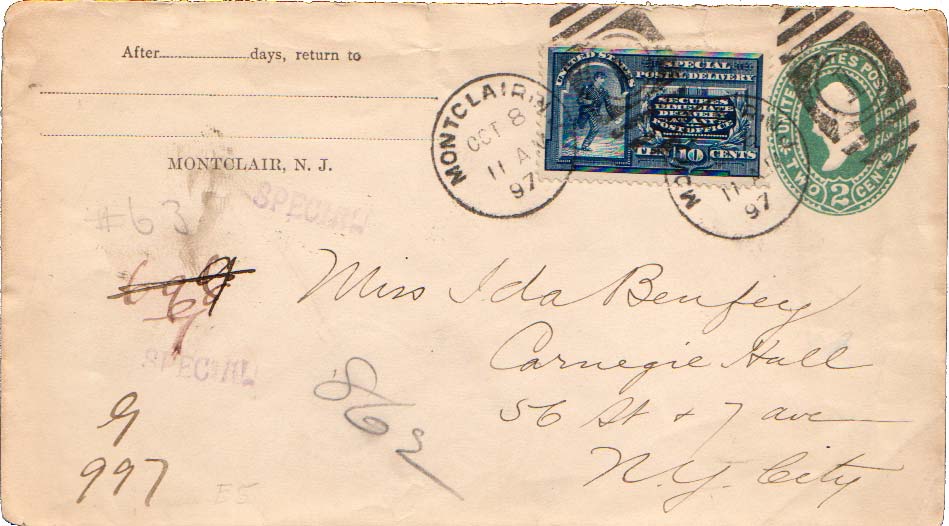 After ........ days, return to
MONTCLAIR, N. J.
MONTCLAIR
OCT 8
11 AM
97
UNITED STATES
SPECIAL
POSTAL DELIVERY
SECURES
IMMEDIATE
DELIVERY
AT ANY
POST OFFICE
TEN 10 CENTS
M
11 A
97
UNITED STATES POSTAGE
TWO 2 CENTS
SPECIAL
#63
SPECIAL
863
9
997
E5
Miss Ida Benfey
Carnegie Hall
56 St + 7 ave
N.Y. City